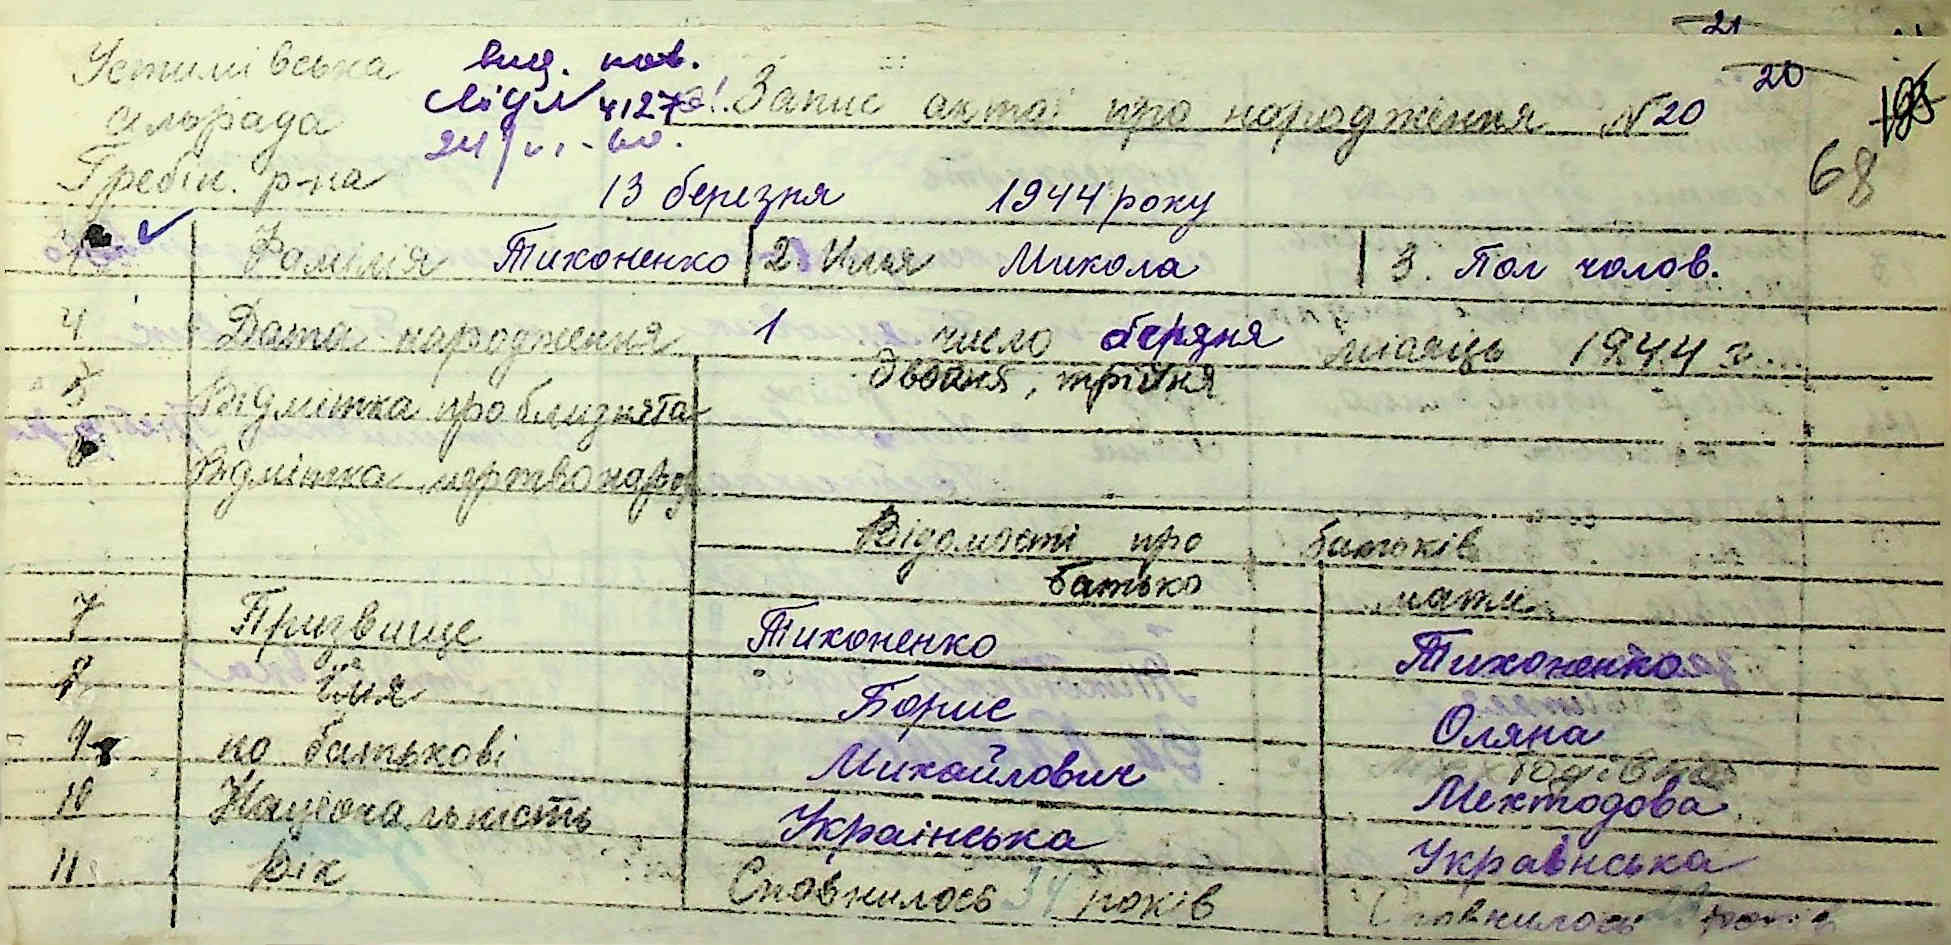 21
Устимівська вид. пов.
сільрада Свід № 4127 Запис акта про народження №20 20 195
Гребін. р-на 24/VI-60. 68
13 березня 1944 року
Фамілія Тихоненко 2. Имя Микола 3. Пол чолов.
4 Дата народження 1 число березня місяць 1944 г.
5 Відмітка про близнята двойня, трійня
6 Відмітка мертвонарод
Відомості про батьків
батько мати
7 Призвище Тихоненко Тихоненко
8 Імя Борис Оляна
9 по батькові Михайлович Мехтодова
10 Національність Українська Українська
11 Вік Сповнилось 34 років Сповнилось років